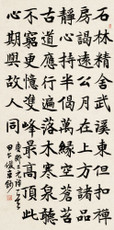 石林精舍武溪東夜扣禪
房謁遠公月在上方諸品
靜心持半偈萬緣空蒼苔
古道行應遍落木寒泉聽
不窮更憶雙峰最高頂此
心期與故人同